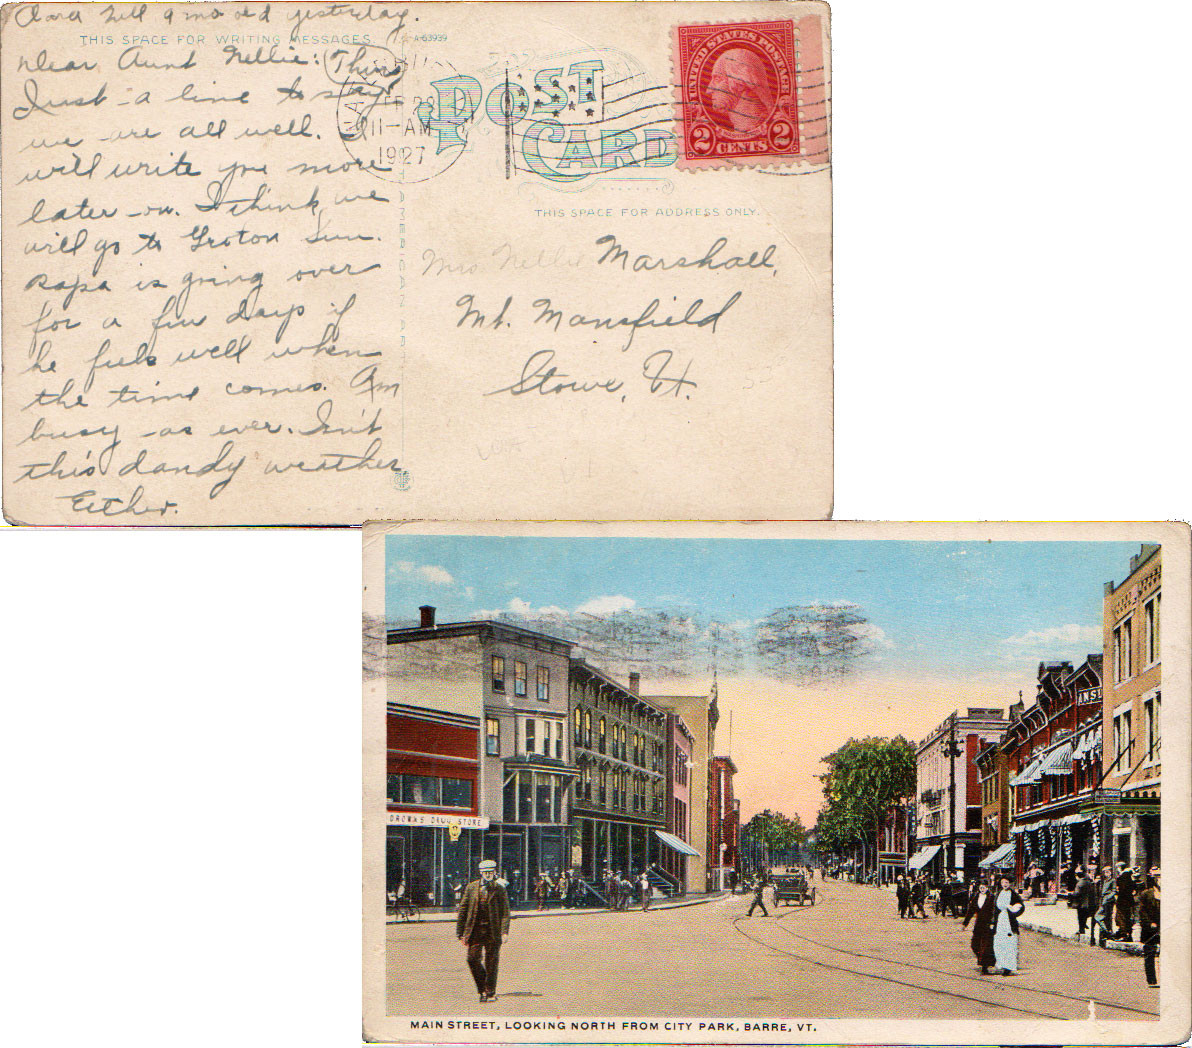 Nell 9 mo old yesterday.
THIS SPACE FOR WRITING MESSAGES
A-63939
Dear Aunt Nellie: Thurs
Just a line to say
we are all well.
will write you more
later on. I think we
will go to Groton Sun.
Papa is going over
for a few days if
he feels well when
the time comes. Am
busy as ever. Isn't
this dandy weather.
Esther.
FEB 23
11-AM
1927
POST
CARD
UNITED STATES POSTAGE
WASHINGTON
2 CENTS 2
THIS SPACE FOR ADDRESS ONLY.
AMERICAN ART
Mrs Nellie Marshall,
Mt. Mansfield
Stowe, Vt.
DROWN'S DRUG STORE
MAIN STREET, LOOKING NORTH FROM CITY PARK, BARRE, VT.